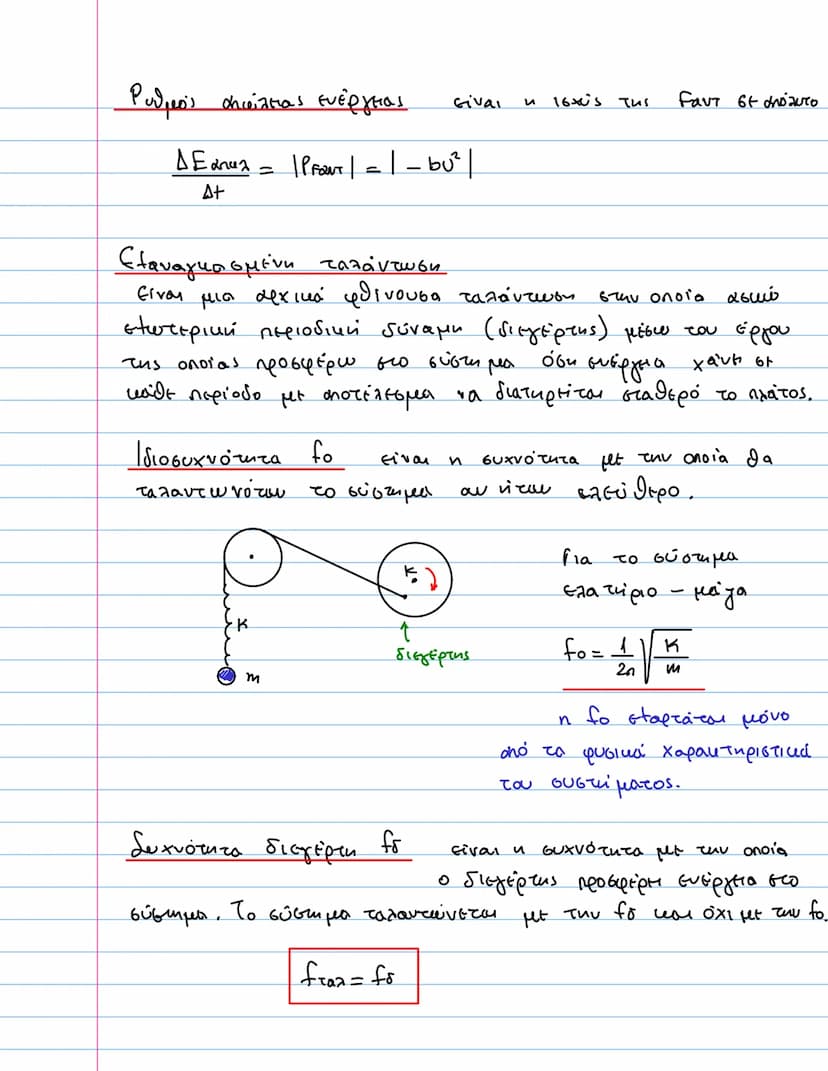 Ρυθμός απώλειας ενέργειας είναι η ισχύς της Fαντ σε απόλυτο
ΔEαπωλ/Δt = |PFαντ| = |-bυ²|
Εξαναγκασμένη ταλάντωση
Είναι μια αρχικά φθίνουσα ταλάντωση στην οποία ασκώ
εξωτερική περιοδική δύναμη (διεγέρτης) μέσω του έργου
της οποίας προσφέρω στο σύστημα όση ενέργεια χάνει σε
κάθε περίοδο με αποτέλεσμα να διατηρείται σταθερό το πλάτος.
Ιδιοσυχνότητα f₀ είναι η συχνότητα με την οποία θα
ταλαντωνόταν το σύστημα αν ήταν ελεύθερο.
K
m
K
διεγέρτης
Για το σύστημα
ελατήριο - μάζα
f₀ = 1/2π √K/m
η f₀ εξαρτάται μόνο
από τα φυσικά χαρακτηριστικά
του συστήματος.
Συχνότητα διεγέρτη fδ είναι η συχνότητα με την οποία
ο διεγέρτης προσφέρει ενέργεια στο
σύστημα. Το σύστημα ταλαντώνεται με την fδ και όχι με την f₀.
fταλ = fδ